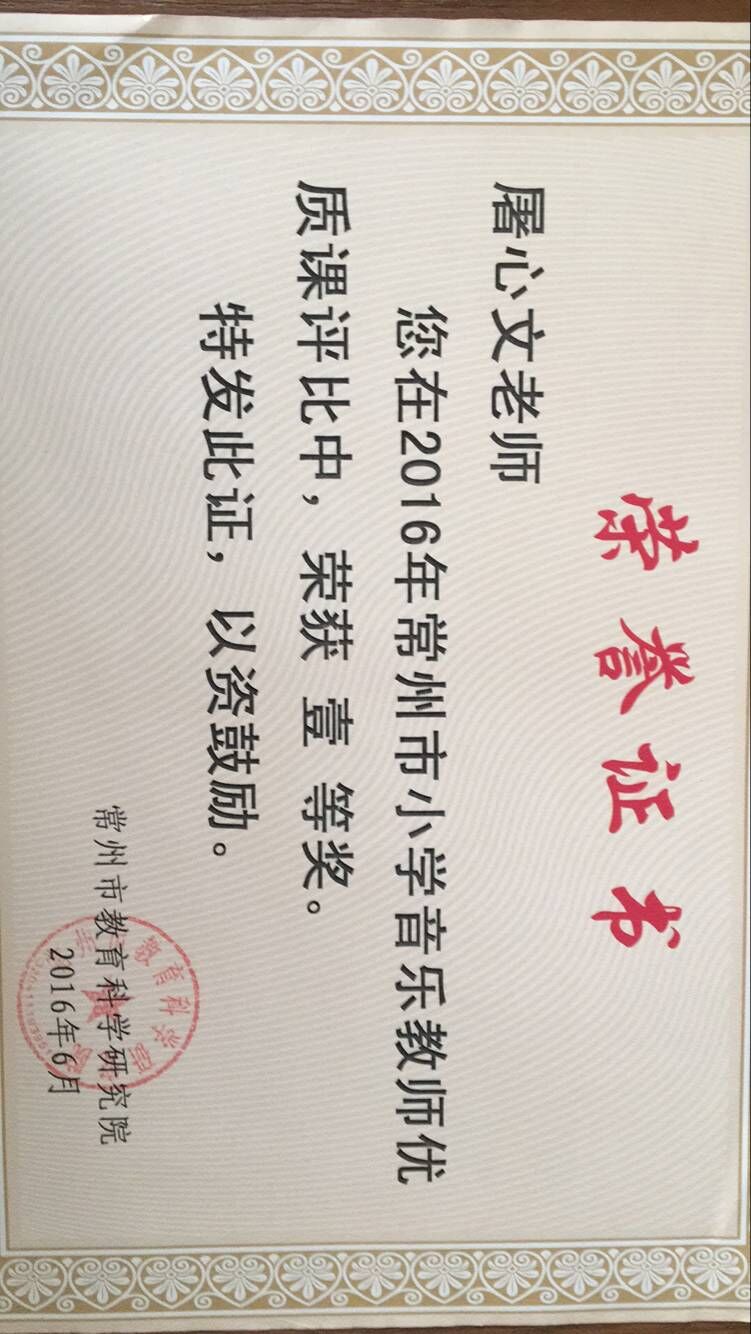 荣誉证书
屠心文老师
您在2016年常州市小学音乐教师优
质课评比中，荣获 壹 等奖。
特发此证，以资鼓励。
常州市教育科学研究院
2016年6月